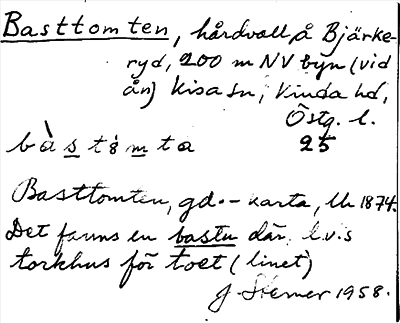 Basttomten, hårdvall, å Bjärke-
ryd, 200 m NV byn (vid
ån) Kisa sn, Kinda hd,
Östg. l.
bàstòmta 25
Basttomten, gd.-karta, LU 1874.
Det fanns en bastu där, l.v.s
torkhus för toet (linet)
J. Sterner 1958.